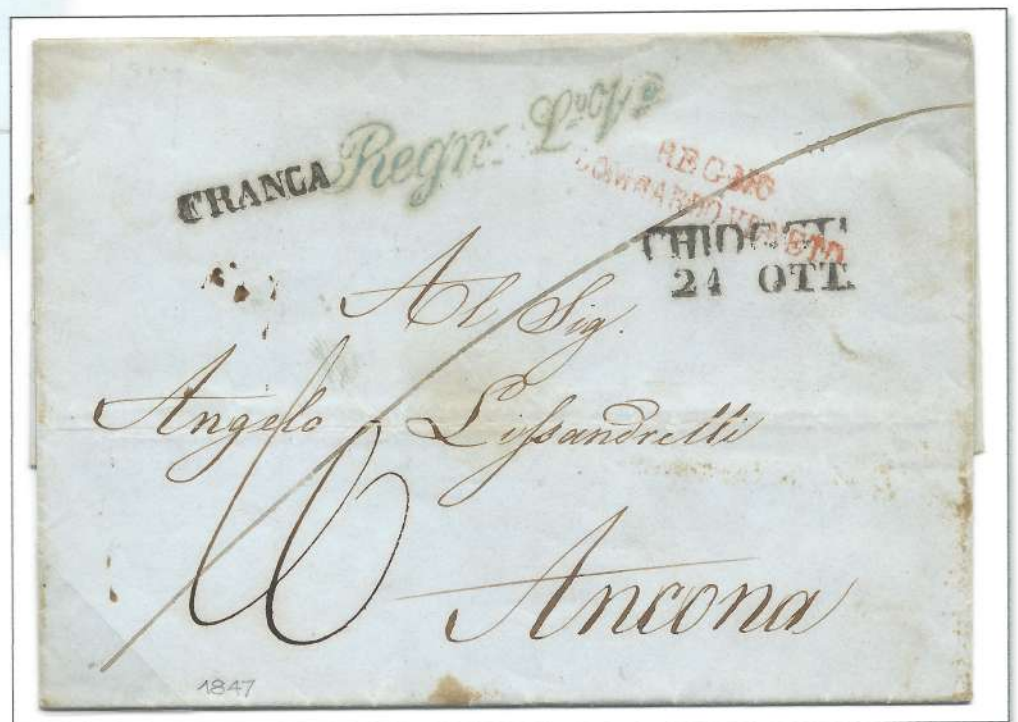 FRANCA
Regno L.º V.º
REGNO
LOMBARDO VENETO
CHIOGGIA
21 OTT.
Al Sig.
Angelo Lissandrelli
6
Ancona
1847